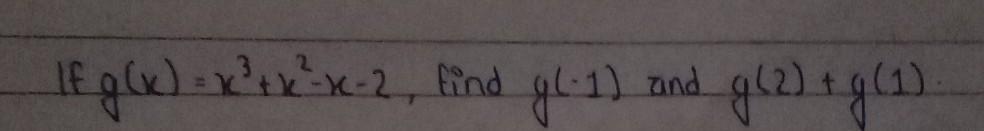 If g(x) = x³+x²-x-2, find g(-1) and g(2) + g(1).